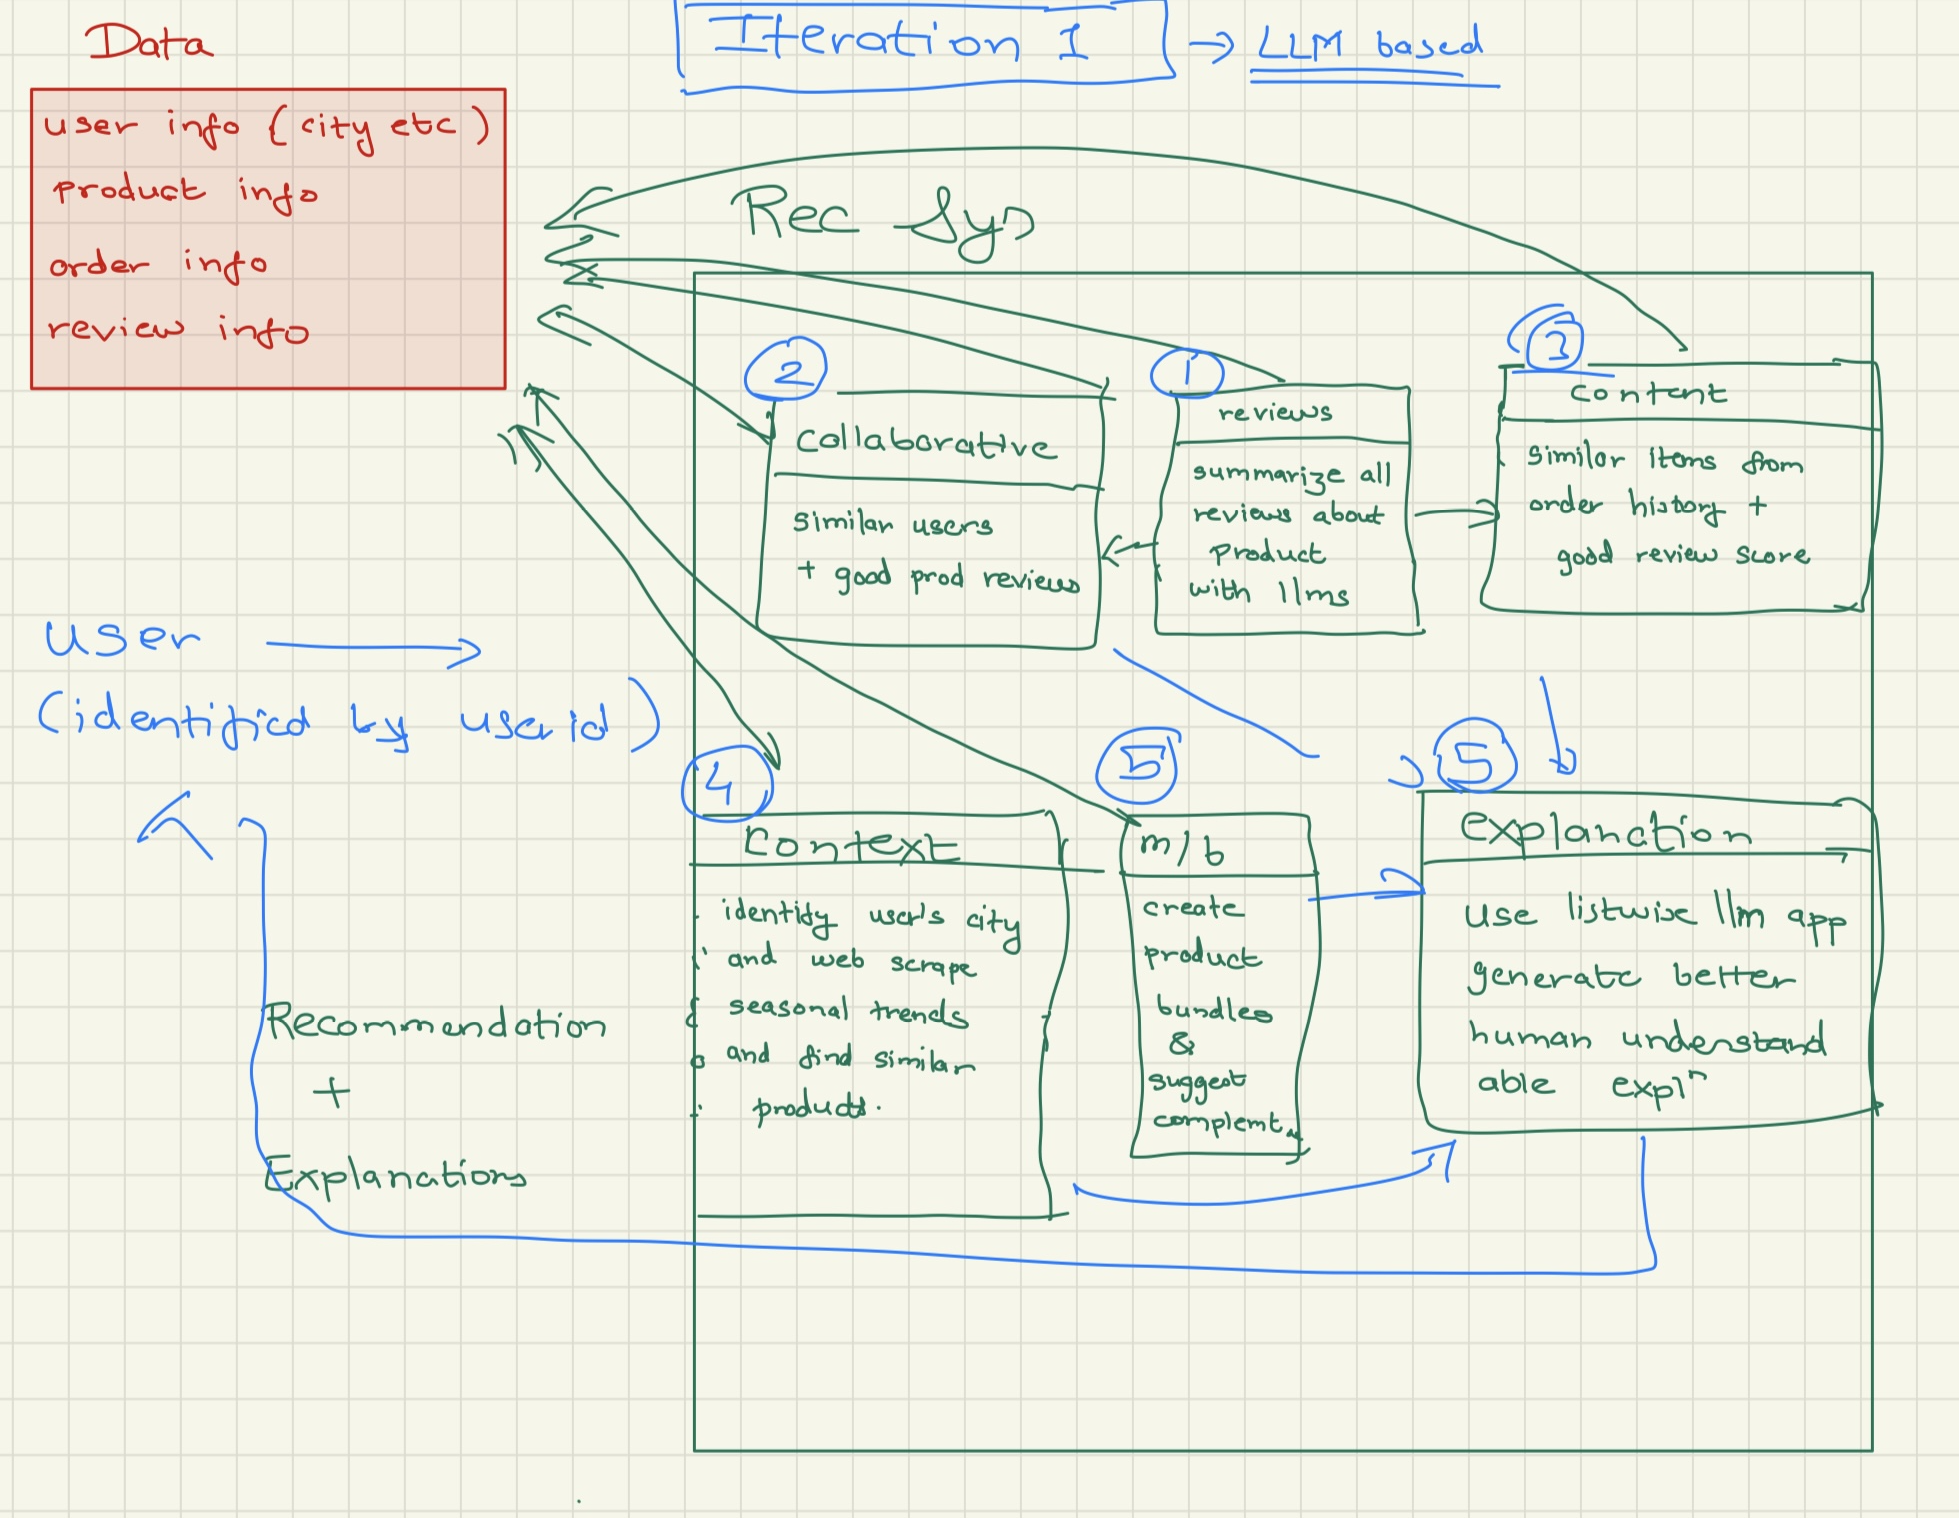 Data
Iteration 1 → LLM based
user info (city etc)
product info
order info
review info
Rec Sys
2
collaborative
similar users
+ good prod reviews
1
reviews
summarize all
reviews about
product
with llms
3
content
similar items from
order history +
good review score
user
(identified by userid)
4
context
identify user's city
and web scrape
seasonal trends
and find similar
products.
5
m/b
create
product
bundles
&
suggest
complemt
5
explanation
use listwise llm app
generate better
human understand
able expl^n
Recommendation
+
Explanations